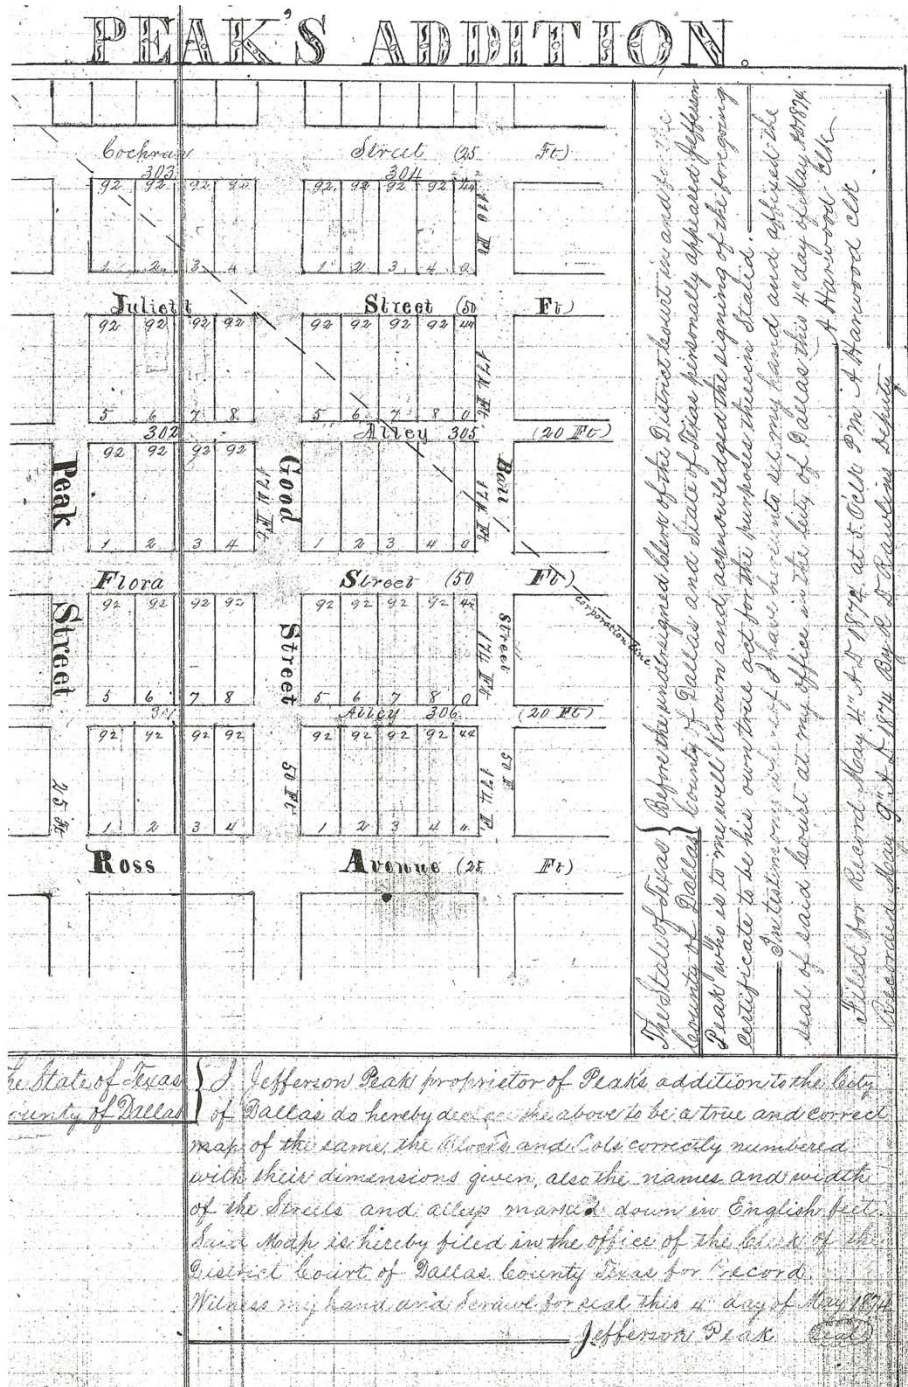 PEAK'S ADDITION.
Cochran Street (25 Ft)
303 304
92 92 92 92 92 92 92 92 44
110 Ft
1 2 3 4 1 2 3 4 0
Juliett Street (50 Ft)
92 92 92 92 92 92 92 92 44
174 Ft
5 6 7 8 5 6 7 8 0
302 Alley 305 (20 Ft)
92 92 92 92
Peak Street 25 Ft
Good Street 50 Ft
174 Ft
174 Ft
1 2 3 4 1 2 3 4 0
Flora Street (50 Ft)
Corporation line
92 92 92 92 92 92 92 92 44
174 Ft
Street 50 F
5 6 7 8 5 6 7 8 0
Alley 306 (20 Ft)
92 92 92 92 92 92 92 92 44
174 F.
1 2 3 4 1 2 3 4
Ross Avenue (25 Ft)
The State of Texas
County of Dallas
Before the undersigned Clerk of the District Court in and for the
County of Dallas and State of Texas personally appeared Jefferson
Peak who is to me well known and acknowledged the signing of the foregoing
certificate to be his own true act for the purposes therein Stated.
In testimony whereof I have hereunto set my hand and affixed the
seal of said Court at my office in the City of Dallas this 4" day of May AD 1874
A Harwood Clk
Filled for Record May 4" A D 1874 at 5 Oclk P.M. A Harwood Clk.
Recorded May 9" A D 1874 By R. D. Rawlins Deputy
he State of Texas
ounty of Dallas
I Jefferson Peak proprietor of Peak's addition to the City
of Dallas do hereby declare the above to be a true and correct
map of the same, the Blocks and Lots correctly numbered
with their dimensions given, also the names and width
of the Streets and alleys marked down in English feet.
Said Map is hereby filed in the office of the Clerk of the
District Court of Dallas County Texas for record.
Witness my hand and Scrawl for seal this 4" day of May 1874
Jefferson Peak (Seal)